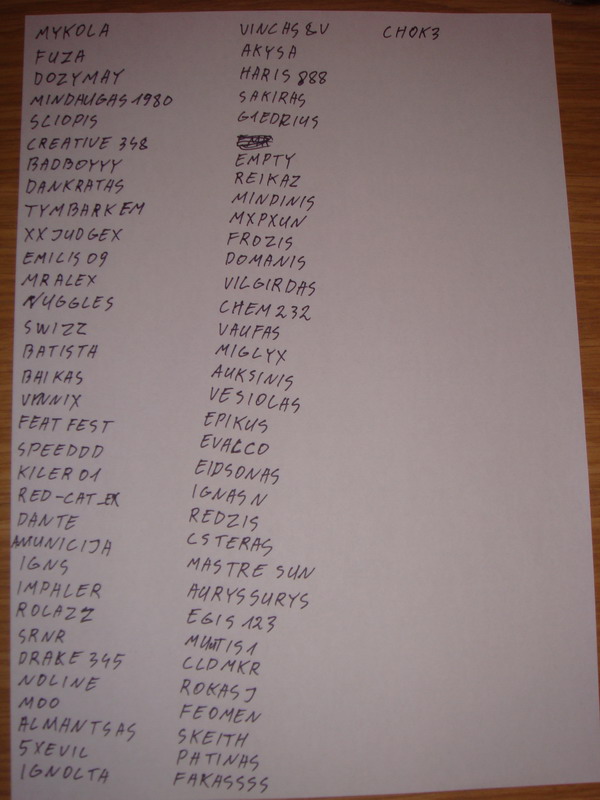 MYKOLA
FUZA
DOZYMAY
MINDAUGAS1980
SLIOPIS
CREATIVE 348
BADBOYYY
DANKRATAS
TYMBARKEM
XXJUDGEX
EMILIS09
MRALEX
NUGGLES
SWIZZ
BATISTA
BAIKAS
VANNIX
FEATFEST
SPEEDDD
KILER01
RED-CAT_EX
DANTE
AMUNICIJA
IGNS
IMPALER
ROLAZZ
SRNR
DRAKE 345
NOLINE
MOO
ALMANTSAS
5XEVIL
IGNOLTA
VINCAS&V
AKYSA
HARIS 888
SAKIRAS
G1EDRIUS
EMPTY
REIKAZ
MINDINIS
MXPXUN
FROZIS
DOMANIS
VILGIRDAS
CHEM232
VAUFAS
MIGLYX
AUKSINIS
VESIOLAS
EPIKUS
EVALCO
EIDSONAS
IGNASN
REDZIS
CSTERAS
MASTRE SUN
AURYSSURYS
EGIS 123
CLDMKR
ROKASJ
FEOMEN
SKEITH
PATINAS
FAKASSSS
CHOK3